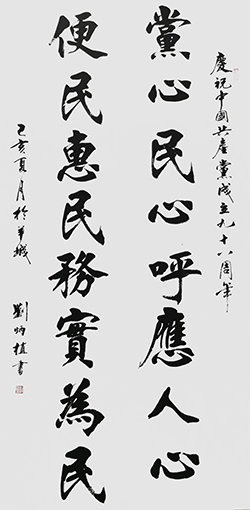 慶祝中國共產黨成立九十八周年
黨心民心呼應人心
便民惠民務實為民
己亥夏月於羊城
劉炳植書